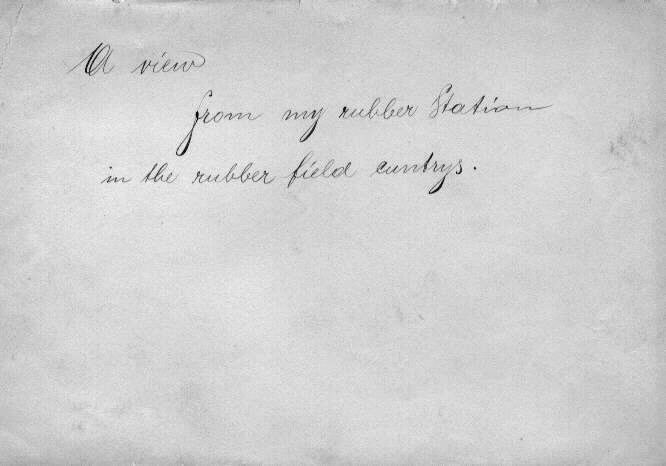 A view
from my rubber Station
in the rubber field cuntrys.